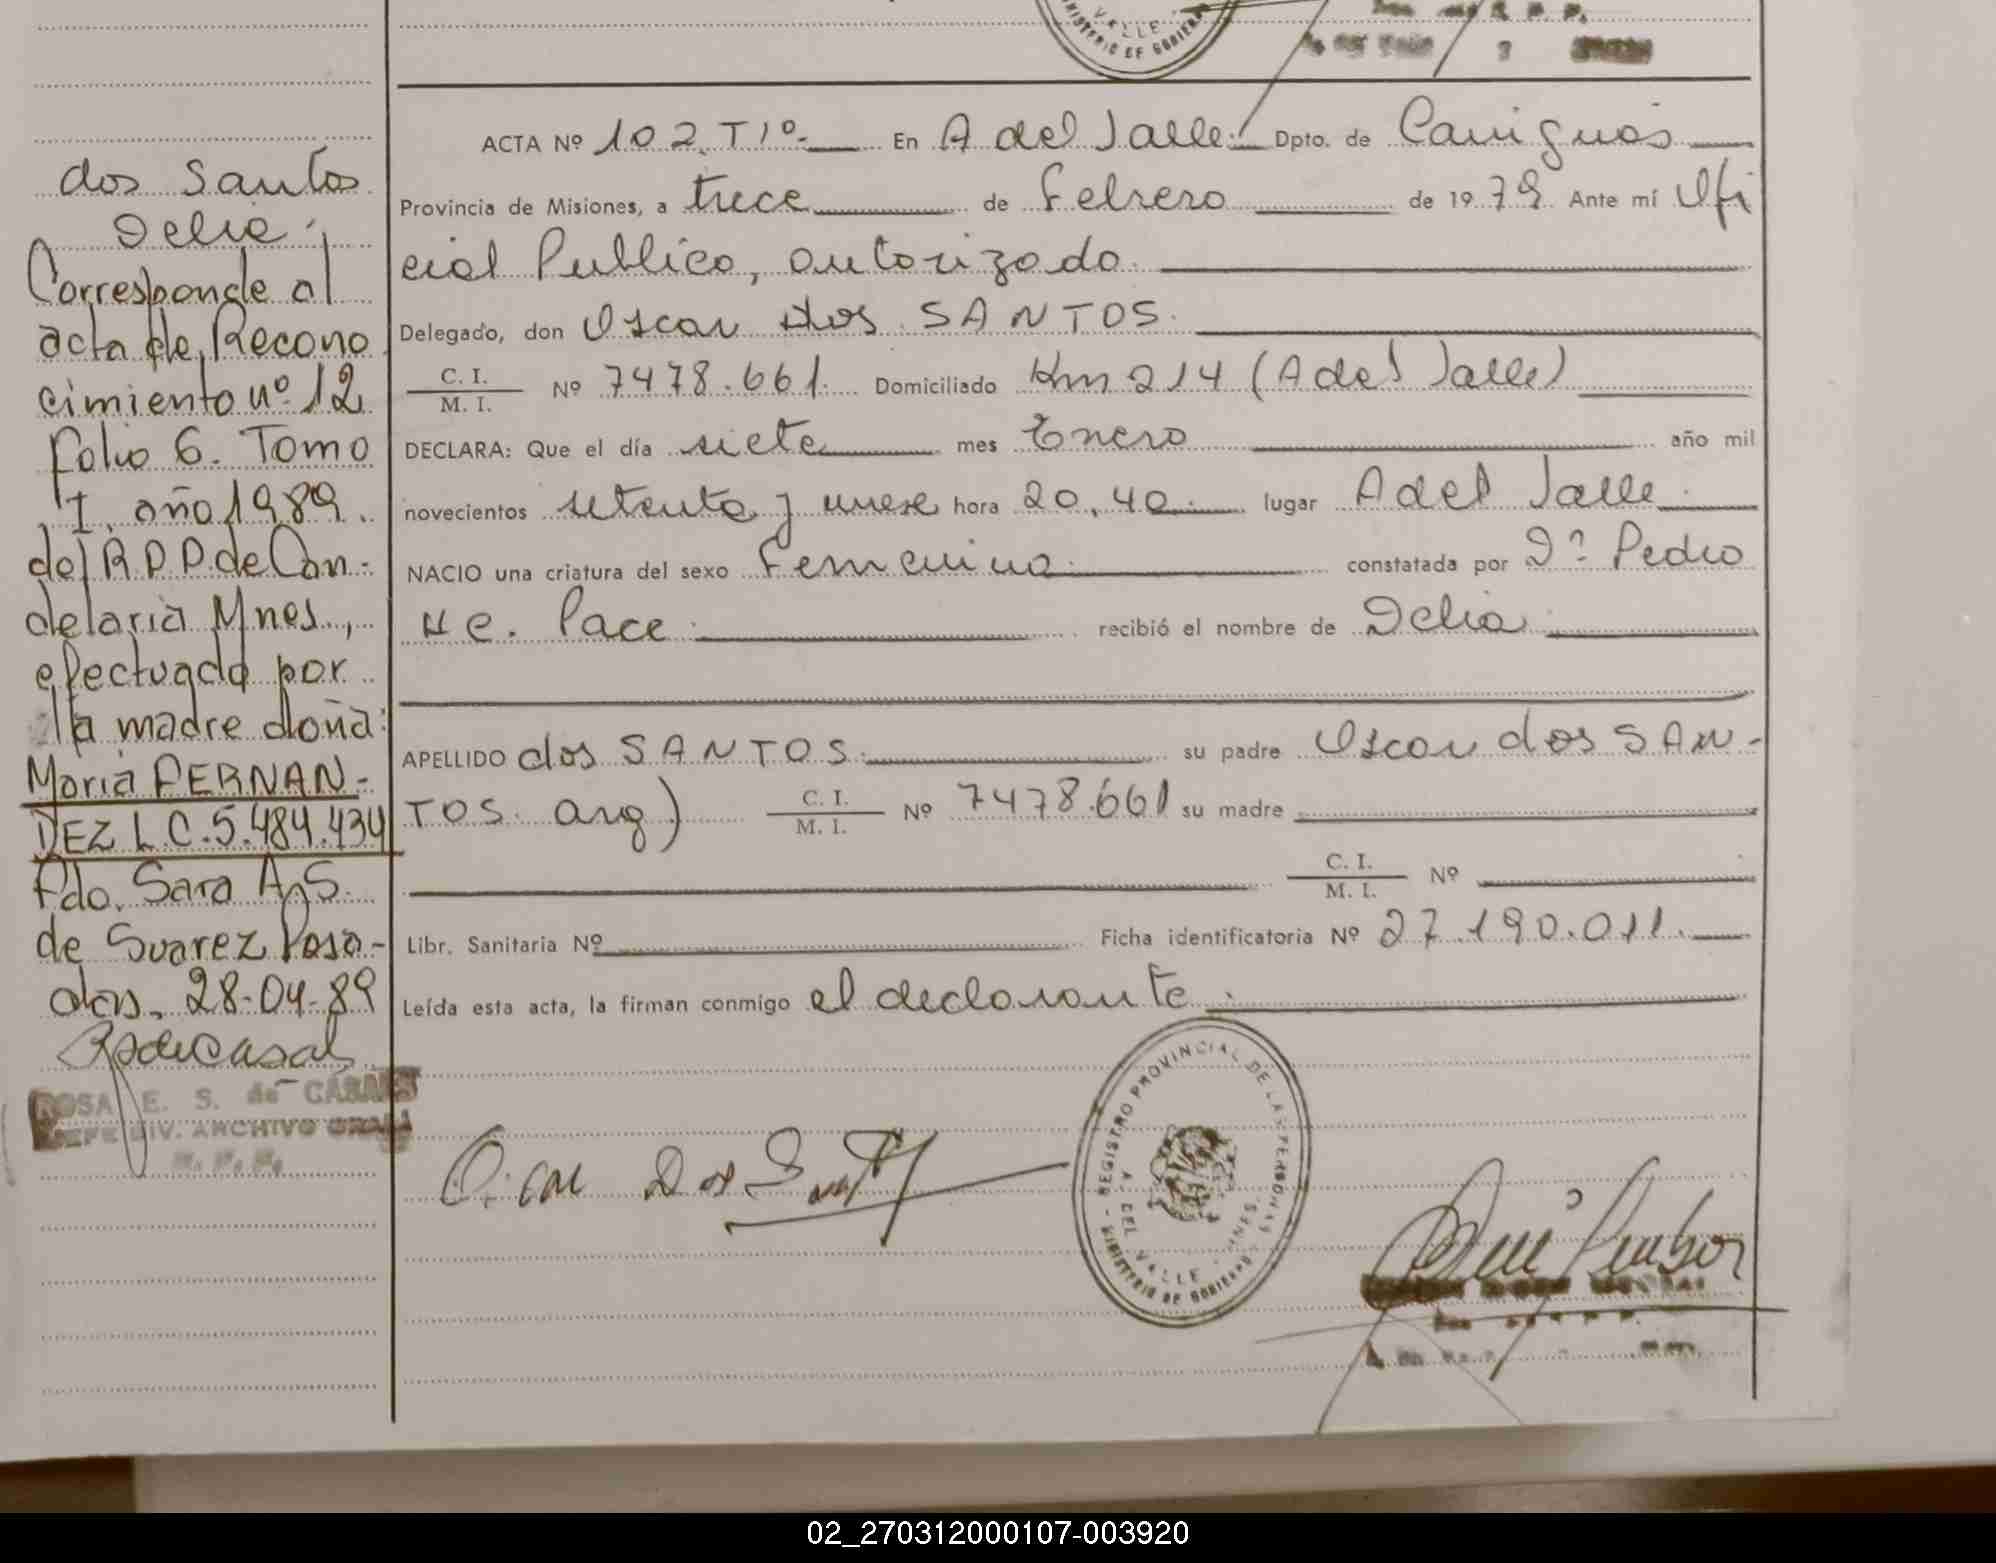 VALLE
MINISTERIO DE GOBIERNO
dos Santos
Delia.
Corresponde al
acta de Recono
cimiento nº 12
folio 6. Tomo
I. año 1989.
del R.P.P. de Can-
delaria Mnes.,
efectuada por
la madre doña:
Maria FERNAN-
DEZ L.C. 5.484.434
Fdo. Sara A. S.
de Suarez Posa-
das, 28-04-89
ROSA E. S. de CASALS
JEFE DIV. ARCHIVO GRAL.
R. P. P.
ACTA Nº 102 T1º- En A del Valle. Dpto. de Cainguas
Provincia de Misiones, a trece de Febrero de 1979. Ante mí Ofi
cial Publico, autorizado.
Delegado, don Oscar dos SANTOS.
C. I.
M. I. Nº 7478.661. Domiciliado Km 214 (A del Valle)
DECLARA: Que el día siete mes Enero año mil
novecientos setenta y nueve hora 20,40. lugar A del Valle.
NACIO una criatura del sexo Femenino. constatada por Dº Pedro
H C. Pace. recibió el nombre de Delia
APELLIDO dos SANTOS. su padre Oscar dos SAN-
TOS. arg) C. I.
M. I. Nº 7478.661 su madre
C. I.
M. I. Nº
Libr. Sanitaria Nº Ficha identificatoria Nº 27.190.011.
Leída esta acta, la firman conmigo el declarante.
Oscar Dos Santos
REGISTRO PROVINCIAL DE LAS PERSONAS
A. DEL VALLE - MNES.
MINISTERIO DE GOBIERNO
02_270312000107-003920